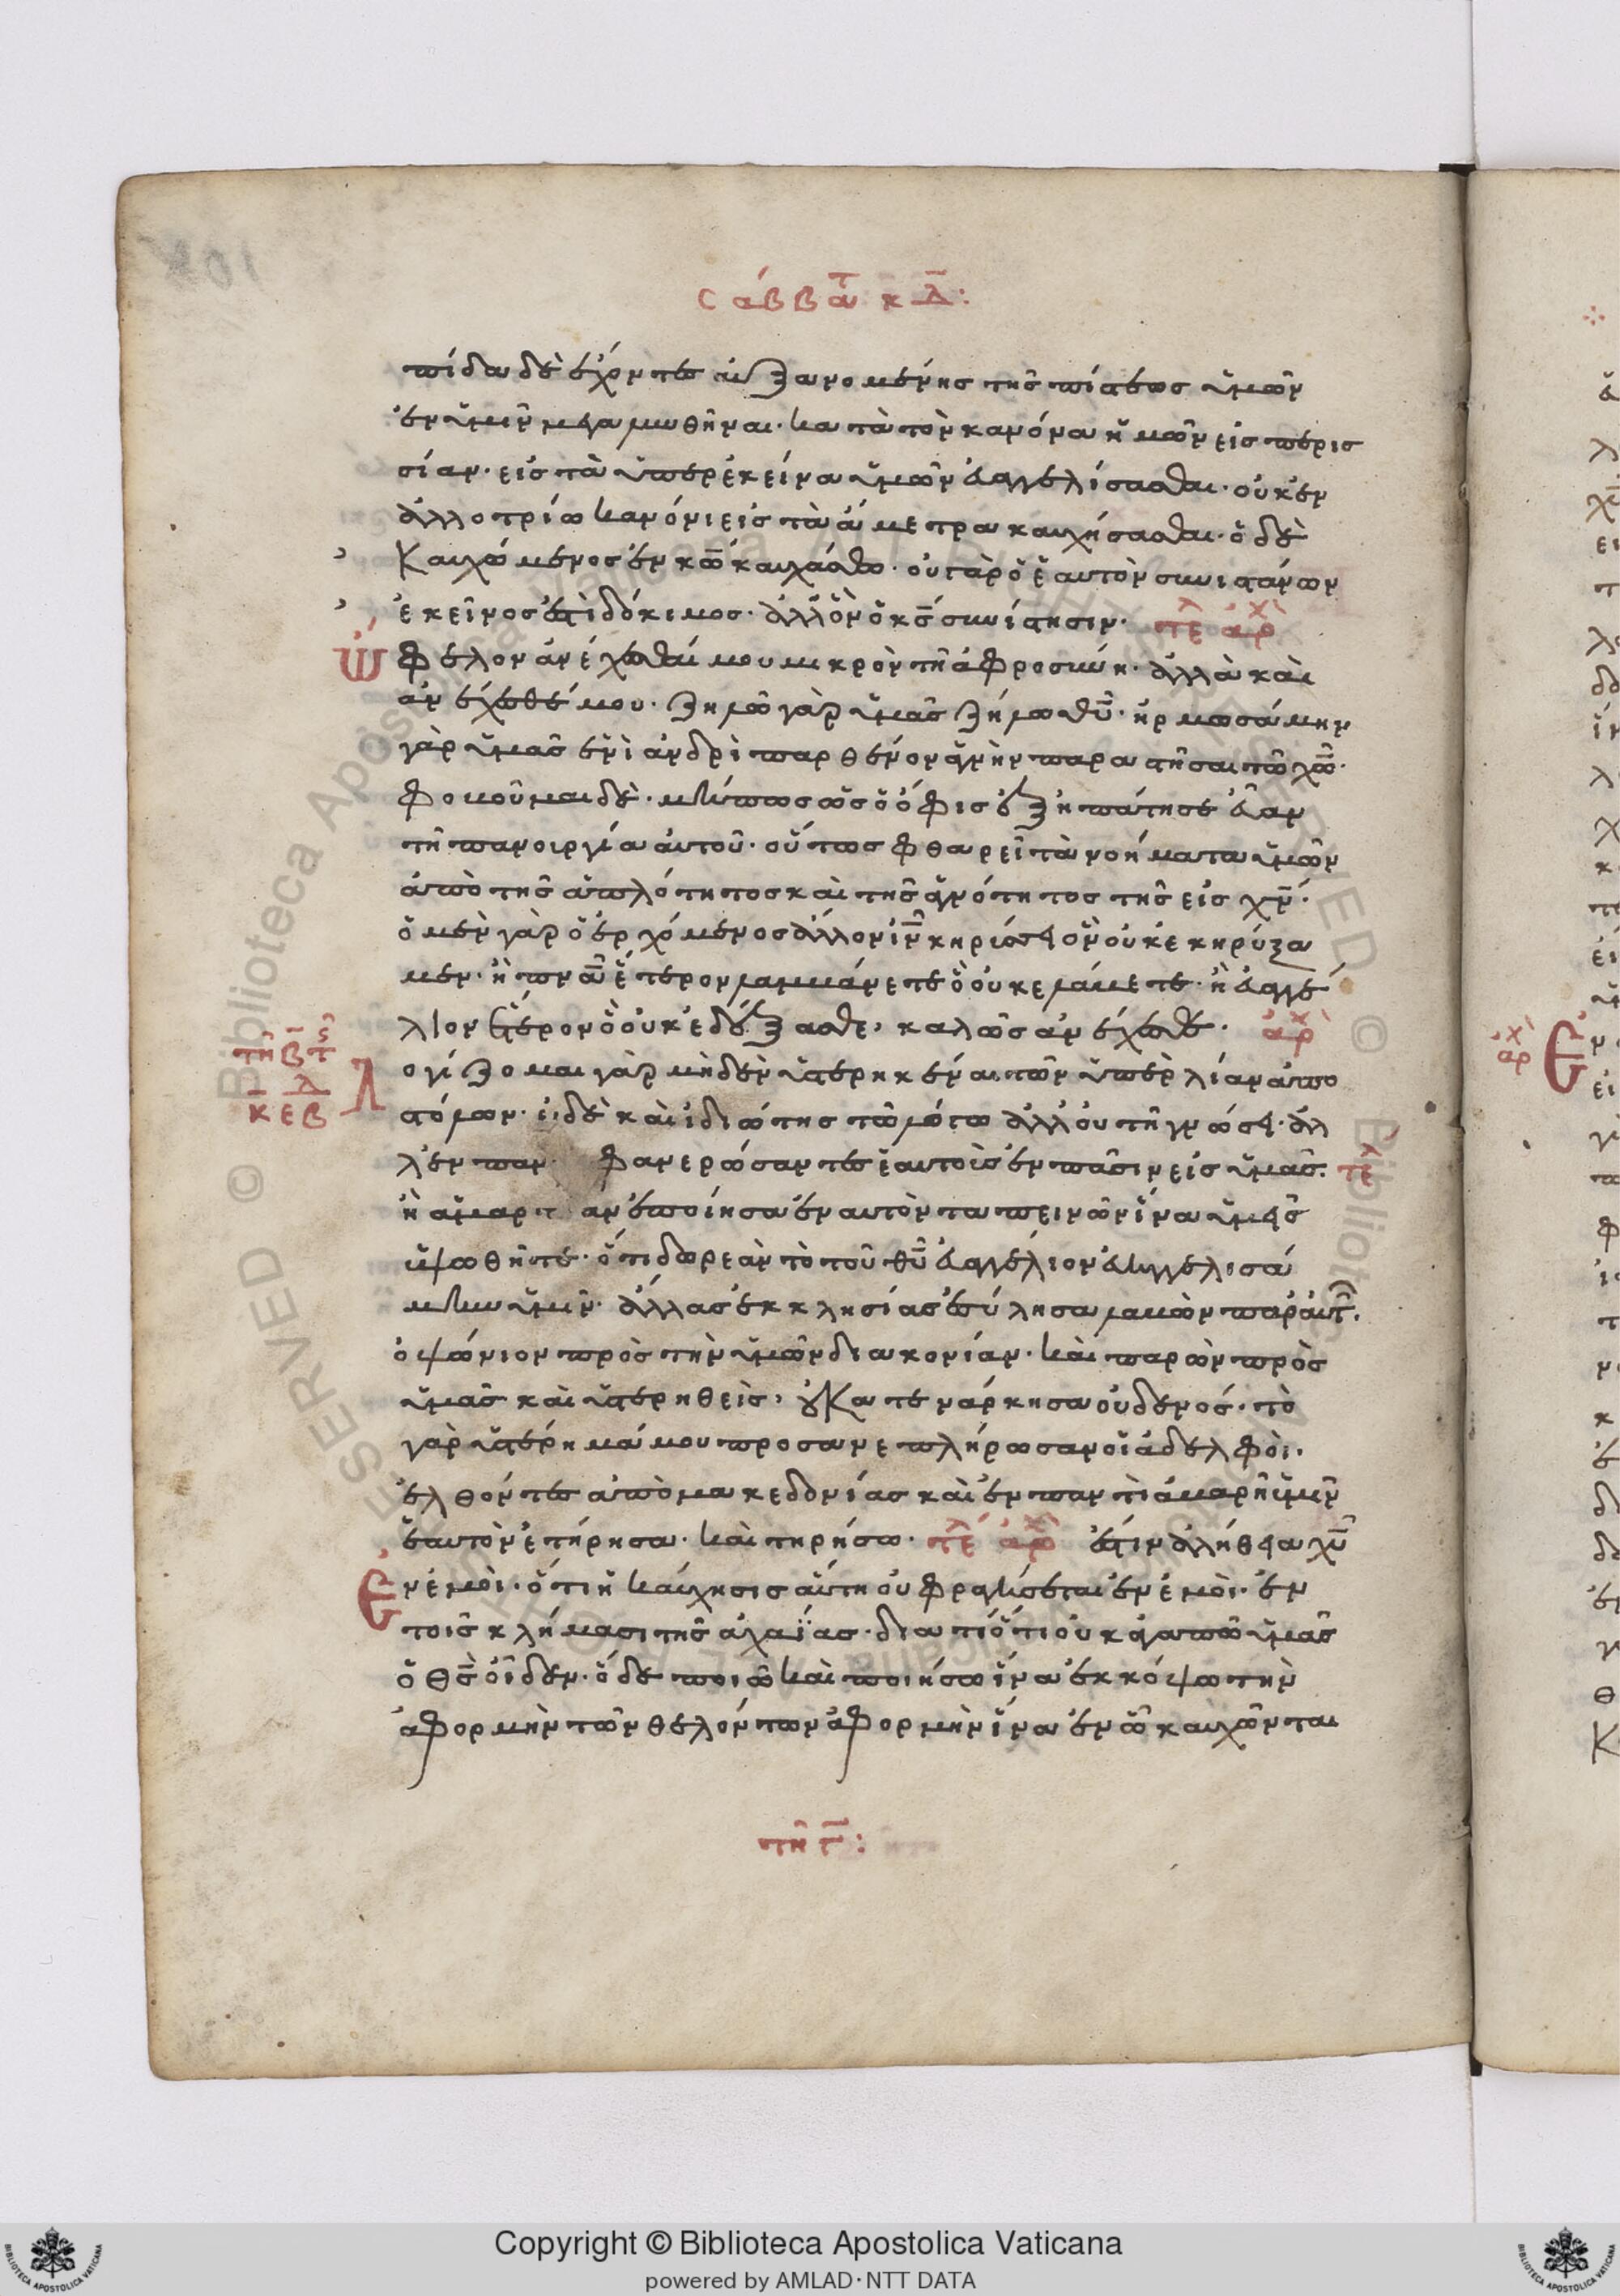 σάββατ κδ:
πίδα δὲ ἔχοντες αὐξανομένης τῆς πίστεως ὑμῶν
ἐν ὑμῖν μεγαλυνθῆναι· κατὰ τὸν κανόνα ἡμῶν εἰς περισ
σίαν· εἰς τὰ ὑπερέκεινα ὑμῶν εὐαγγελίσασθαι· οὐκ ἐν
ἀλλοτρίω κανόνι εἰς τὰ ἄμετρα καυχήσασθαι· ὁ δὲ
καυχώμενος ἐν κω καυχάσθω· οὐ γὰρ ὁ ἑαυτὸν συνιστάνων
ἐκεῖνος ἐστὶ δόκιμος· ἀλλ' ὃν ὁ κς συνίστησιν· τέλ ἀρχ
Ὤφελον ἀνέχεσθαί μου μικρὸν τῆ ἀφροσύνη· ἀλλὰ καὶ
ἀνέχεσθέ μου· ζηλῶ γὰρ ὑμᾶς ζήλω θυ· ἡρμοσάμην
γὰρ ὑμᾶς ἑνὶ ἀνδρὶ παρθένον ἁγνὴν παραστῆσαι τῶ χω·
φοβοῦμαι δὲ· μήπως ὡς ὁ ὄφις ἐξηπάτησε εὔαν
τῆ πανουργία αὐτοῦ· οὕτως φθαρεῖ τὰ νοήματα ὑμῶν
ἀπὸ τῆς ἁπλότητος καὶ τῆς ἁγνότητος τῆς εἰς χν·
ὁ μὲν γὰρ ὁ ἐρχόμενος ἄλλον ιν κηρύσσει ὃν οὐκ ἐκηρύξα
μεν· ἢ πνα ἕτερον λαμβάνετε ὃ οὐκ ἐλάβετε· ἢ εὐαγγέ
λιον ἕτερον ὃ οὐκ ἐδέξασθε, καλῶς ἀνείχεσθε· ἀρχ
τῆ β τς
κδ εβ
Λογίζομαι γὰρ μηδὲν ὑστερηκέναι τῶν ὑπὲρ λίαν ἀπο
στόλων· εἰ δὲ καὶ ἰδιώτης τῶ λόγω ἀλλ' οὐ τῆ γνώσει· ἀλ
λ' ἐν παν φανερώσαντες ἑαυτοὺς ἐν πᾶσιν εἰς ὑμᾶς· τέλ
ἢ ἁμαρτ αν ἐποίησα ἐμαυτὸν ταπεινῶν ἵνα ὑμεῖς
ὑψωθῆτε· ὅτι δωρεὰν τὸ τοῦ θυ εὐαγγέλιον εὐηγγελισά
μην ὑμῖν· ἄλλας ἐκκλησίας ἐσύλησα λαβὼν παρ' αὐτ·
ὀψώνιον πρὸς τὴν ὑμῶν διακονίαν· καὶ παρὼν πρὸς
ὑμᾶς καὶ ὑστερηθεὶς, οὐ κατενάρκησα οὐδενός· τὸ
γὰρ ὑστέρημά μου προσανεπλήρωσαν οἱ ἀδελφοὶ·
ἐλθόντες ἀπὸ μακεδονίας καὶ ἐν παντὶ ἀβαρῆ ὑμῖν
ἑαυτὸν ἐτήρησα· καὶ τηρήσω· τέλ ἀρχ ἔστιν ἀλήθεια χυ
Ἐν ἐμοὶ· ὅτι ἡ καύχησις αὕτη οὐ φραγήσεται ἐν ἐμοὶ· ἐν
τοῖς κλήμασι τῆς ἀχαΐας· διατί ὅτι οὐκ ἀγαπῶ ὑμᾶς
ὁ θς οἶδεν· ὃ δὲ ποιῶ καὶ ποιήσω ἵνα ἐκκόψω τὴν
ἀφορμὴν τῶν θελόντων ἀφορμὴν ἵνα ἐν ὧ καυχῶνται
τῆ γ:
Copyright © Biblioteca Apostolica Vaticana
powered by AMLAD·NTT DATA